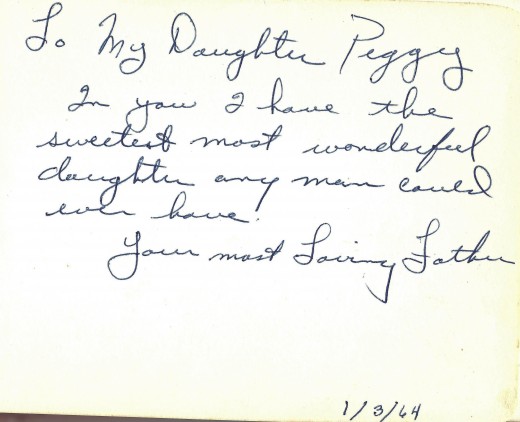 To My Daughter Peggy
In you I have the
sweetest most wonderful
daughter any man could
ever have!
Your most Loving Father
1/3/64